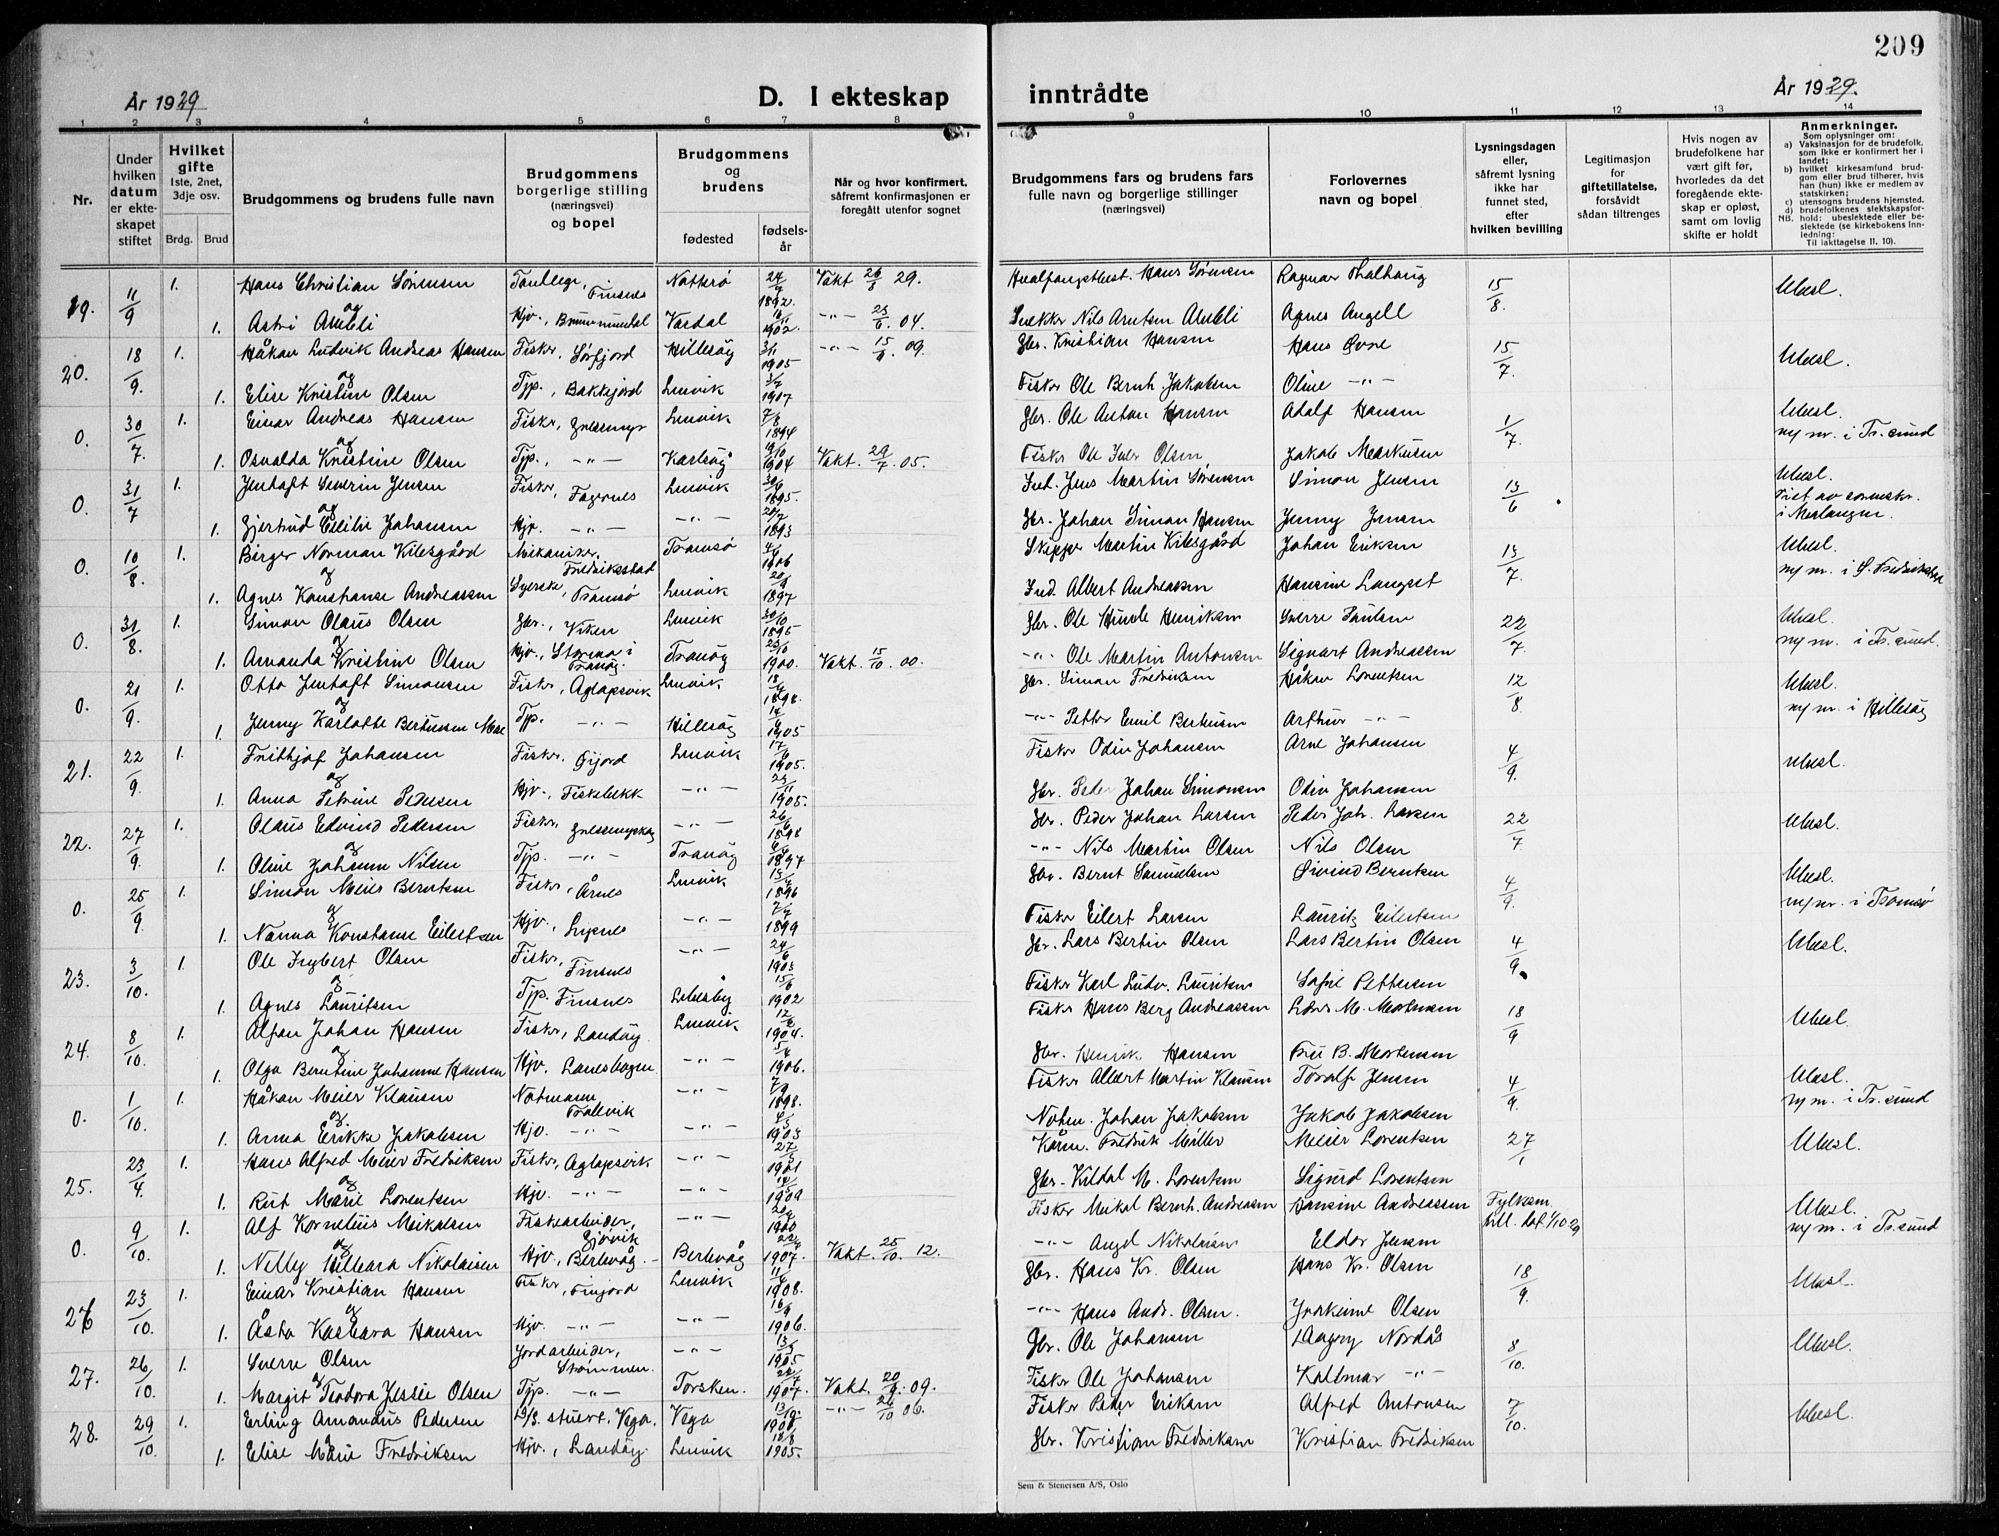 209
År 1929
D. I ekteskap
inntrådte
År 1929.
1 2 3 4 5 6 7 8 9 10 11 12 13 14
Nr.
Under hvilken datum er ekteskapet stiftet
Hvilket gifte
1ste, 2net, 3dje osv.
Brdg. Brud
Brudgommens og brudens fulle navn
Brudgommens borgerlige stilling (næringsvei) og bopel
Brudgommens og brudens
fødested
fødselsår
Når og hvor konfirmert, såfremt konfirmasjonen er foregått utenfor sognet
Brudgommens fars og brudens fars
fulle navn og borgerlige stillinger
(næringsvei)
Forlovernes
navn og bopel
Lysningsdagen eller, såfremt lysning ikke har funnet sted, efter hvilken bevilling
Legitimasjon for giftetillatelse, forsåvidt sådan tiltrenges
Hvis nogen av brudefolkene har vært gift før, hvorledes da det foregående ekteskap er opløst, samt om lovlig skifte er holdt
Anmerkninger.
Som oplysninger om:
a) Vaksinasjon for de brudefolk, som ikke er konfirmert her i landet;
b) hvilket kirkesamfund brudgom eller brud tilhører, hvis han (hun) ikke er medlem av statskirken;
c) utensogns brudens hjemsted.
d) brudefolkenes slektskapsforhold: ubeslektede eller beslektede (se kirkebokens innledning:
NB.
Til iakttagelse II. 10).
19. 11/9 1. Hans Christian Sørensen Tannlege, Finsnes Nøtterø 24/7 1892. Vakt 26/5 29. Hvalfangstbest. Hans Sørensen 15/8 Ubesl.
og
1. Astri Aubli Hjv., Brumunddal Vardal 1902. -"- 23/6 04. Snekker Nils Arntsen Aubli Agnes Angell
20. 18/9. 1. Håkon Ludvik Andreas Hansen Fiskr, Sørfjord Hillesøy 3/11 1905 -"- 15/9 09. Gbr. Kristian Hansen Hans Øvre 15/7 Ubesl.
og
1. Elise Kristine Olsen Tjp., Bakkejord Lenvik 3/7 1907 Fiskr Ole Bernh. Jakobsen Oline -"-
0. 30/7. 1. Einar Andreas Hansen Fiskr, Lenvik 7/8 1894 Gbr. Ole Anton Hansen Adolf Hansen 1/7. Ubesl. ny m. i Tr.sund
og
1. Osvalda Kristine Olsen Tjp., -"- Karlsøy 1904 Vakt. 29/7 05. Fiskr Ole Iver Olsen Jakob Markusen
0. 31/7 1. Jenhaft Severin Jensen Fiskr, Fagernes Lenvik 30/6 1895. Ind. Jens Martin Sørensen Simon Jensen 13/6 Ubesl. Viet av sorenskr. i Malangen.
og
1. Gjertrud Eililie Johansen Hjv. -"- -"- 1893 Gbr. Johan Simon Hansen Jenny Jensen
0. 10/8. 1. Birger Norman Kilesgård Mekaniker, Fredrikstad Tromsø 4/6 1906 Skipper Martin Kilesgård Johan Eriksen 13/7. Ubesl. ny m. i Ø. Fredrikstad
og
1. Agnes Konstanse Andreassen Syerske, Tromsø Lenvik 20/9 1897 Ind. Albert Andreassen Hansine Langset
0. 31/8. 1. Simon Olaus Olsen Gbr., Viken Lenvik 30/10 1895 Gbr. Ole Hinde Henriksen Sverre Paulsen 22/7. Ubesl. ny m. i Tr.sund.
og
1. Amanda Kristine Olsen Hjv., i Tranøy. Tranøy 1900. Vakt. 15/10. 00. -"- Ole Martin Antonsen Signart Andreassen
0. 21/9. 1. Otto Jenhaft Simonsen Fiskr, Aglapsvik Lenvik 1898. Gbr. Simon Fredriksen Håkon Lorentsen 12/8 Ubesl. ny m. i Hillesøy
og
1. Jenny Karlotte Bertinsen Moe Tjp. -"- Hillesøy 1905 -"- Petter Emil Bertinsen Arthur -"-
21. 22/9. 1. Frithjof Johansen Fiskr, Gijord Lenvik 17/6 1905. Fiskr Odin Johansen Arne Johansen 4/9. Ubesl.
og
1. Anna Petrine Pedersen Hjv., Fiskebekk -"- 23/11 1905. Gbr. Peder Johan Simonsen Odin Johansen
22. 27/9. 1. Olaus Edvind Pedersen Fiskr, -"- 26/6 1898 Gbr. Peder Johan Larsen Peder Joh. Larsen 22/7 Ubesl.
og
1. Oline Johanne Nilsen Tjp. -"- Tranøy 1897 -"- Nils Martin Olsen Nils Olsen
0. 25/9. 1. Simon Meier Berntsen Fiskr, Årnes Lenvik 1896 Gbr. Bernt Samuelsen Øivind Berntsen 4/9. Ubesl. ny m. i Tromsø
og
1. Nanna Konstanse Eilertsen Hjv., Lysnes -"- 7/7 1899 Fiskr Eilert Larsen Lauritz Eilertsen
23. 3/10. 1. Ole Ingbert Olsen Fiskr, Finsnes -"- 24/6 1903 Gbr. Lars Bertin Olsen Lars Bertin Olsen 4/9. Ubesl.
og
1. Agnes Lauritsen Tjp. Finsnes Lebesby 15/6 1902 Fiskr Karl Ludv. Lauritsen Sofie Pettersen
24. 8/10. 1. Alfon Johan Hansen Fiskr, Sandøy. Lenvik 12/2 1904. Fiskr Hans Berg Andreassen Lars M. Mortensen 18/9 Ubesl.
og
1. Olga Berntine Johanne Hansen Hjv. Lanesbogen -"- 5/4 1906. Gbr. Henrik Hansen Fru B. Mortensen
0. 1/10. 1. Håkon Meier Klausen Notmann, Trollvik -"- 7/9 1898. Fiskr Albert Martin Klausen Toralf Jensen 4/9. Ubesl. ny m. i Tr.sund
og
1. Anna Erikke Jakobsen Hjv. -"- -"- 1903 Notm. Johan Jakobsen Jakob Jakobsen
25. 23/4. 1. Hans Alfred Meier Fredriksen Fiskr, Aglapsvik -"- 27/5 1901 Fredrik Müller Meier Lorentsen 27/1 Ubesl.
og
1. Rut Marie Lorentsen Hjv. -"- -"- 1909 Gbr. Kildal M. Lorentsen Sigurd Lorentsen
0. 9/10. 1. Alf Kornelius Mikalsen Fiskearbeider, Gjövik -"- 1900 Fiskr Mikal Bernh. Andreassen Hansine Andreassen Fylkesm. bill. dat. 1/10 29 Ubesl. ny m. i Tr.sund
og
1. Nelly Nikolaisen Hjv., Berlevåg. Berlevåg 1907. Vakt. 25/10. 12. -"- Angel Nikolaisen Eldor Jensen
26 23/10. 1. Einar Kristian Hansen Fiskr, Finjord Lenvik 11/4 1908. Gbr. Hans Kr. Olsen Hans Kr. Olsen 18/9. Ubesl.
og
1. Åsta Kasbara Hansen Hjv. -"- -"- 16/9 1906. -"- Hans Andr. Olsen. Joakime Olsen
27. 26/10. 1. Sverre Olsen Jordarbeider, Strømmen. -"- 13/5 1905 Gbr. Ole Johansen Dagny Nordås 8/10. Ubesl.
og
1. Margit Teodora Jessie Olsen Tjp. -"- Torsken. 1907. Vakt. 20/9. 09. Fiskr Ole Johansen Kallmar -"-
28. 29/10. 1. Erling Amandus Pedersen D/S. stuert, Vega. Vega 1900. -"- 06. Fiskr Peder Eriksen Alfred Antonsen 7/10. Ubesl.
1. Elise Marie Fredriksen Hjv., Sandöy. Lenvik 1905. Gbr. Kristian Fredriksen Kristian Fredriksen
Sem & Stenersen A/S, Oslo